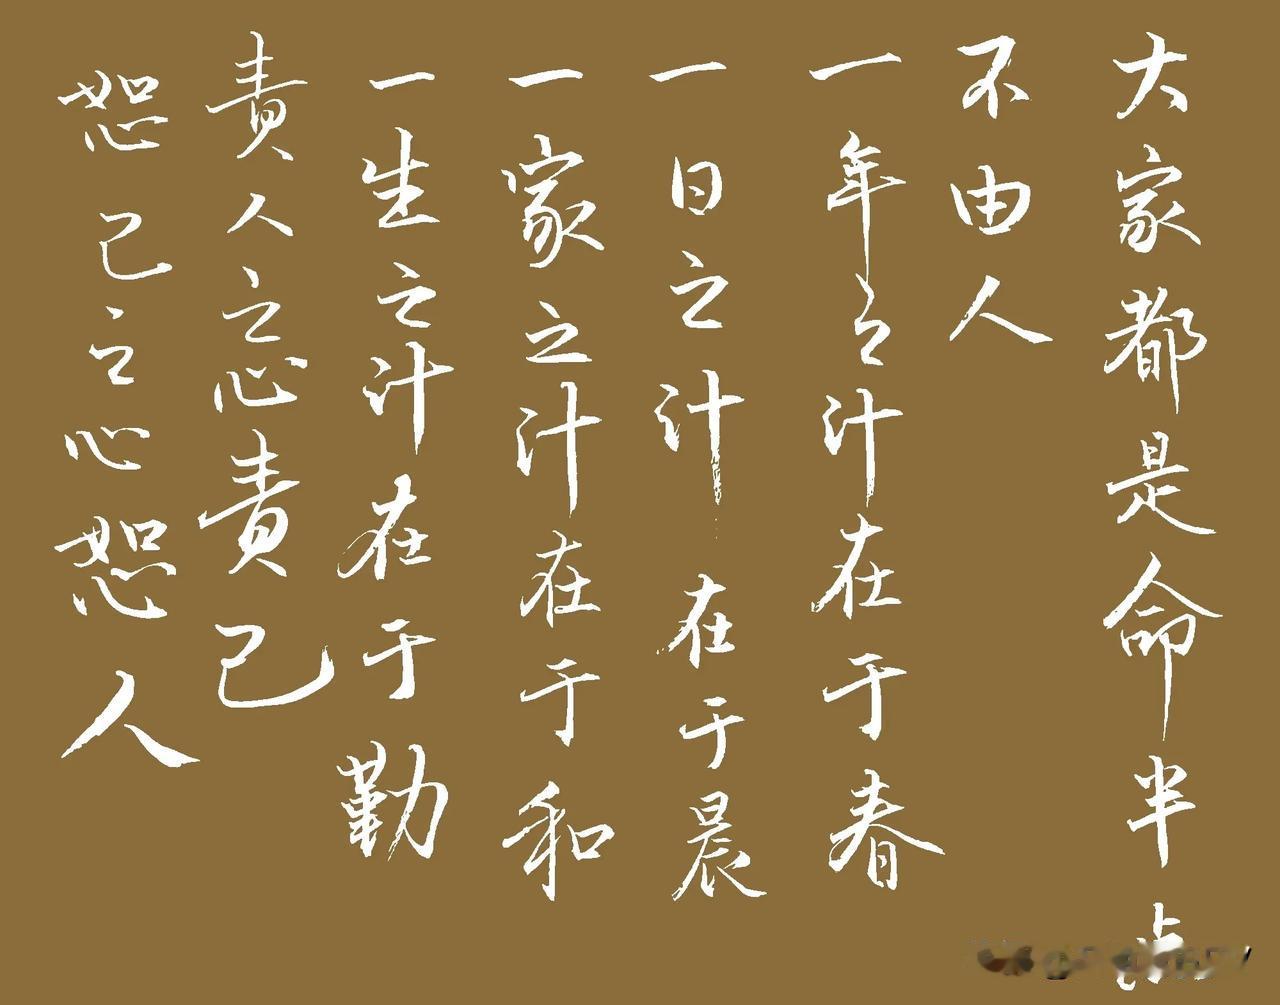 大家都是命半点
不由人
一年之计在于春
一日之计在于晨
一家之计在于和
一生之计在于勤
責人之心責己
恕己之心恕人